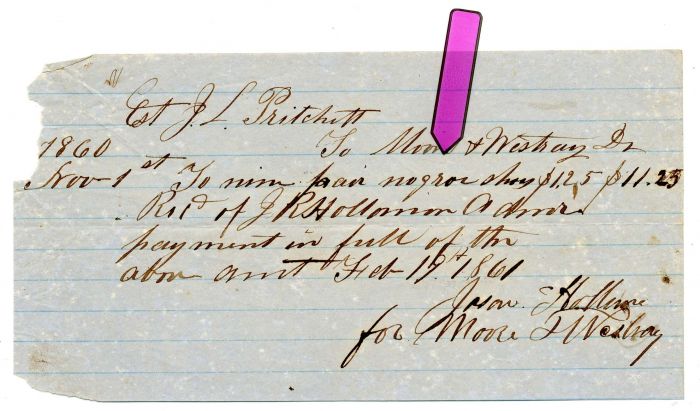 Est J. L. Pritchett
1860 To Moore & Westray Dr
Nov 1st To nine pair negroe shoes $1.25 $11.25
Recd of J R Hollomon Admr
payment in full of the
above amt Feb 19t 1861
Jason
for Moore & Westray